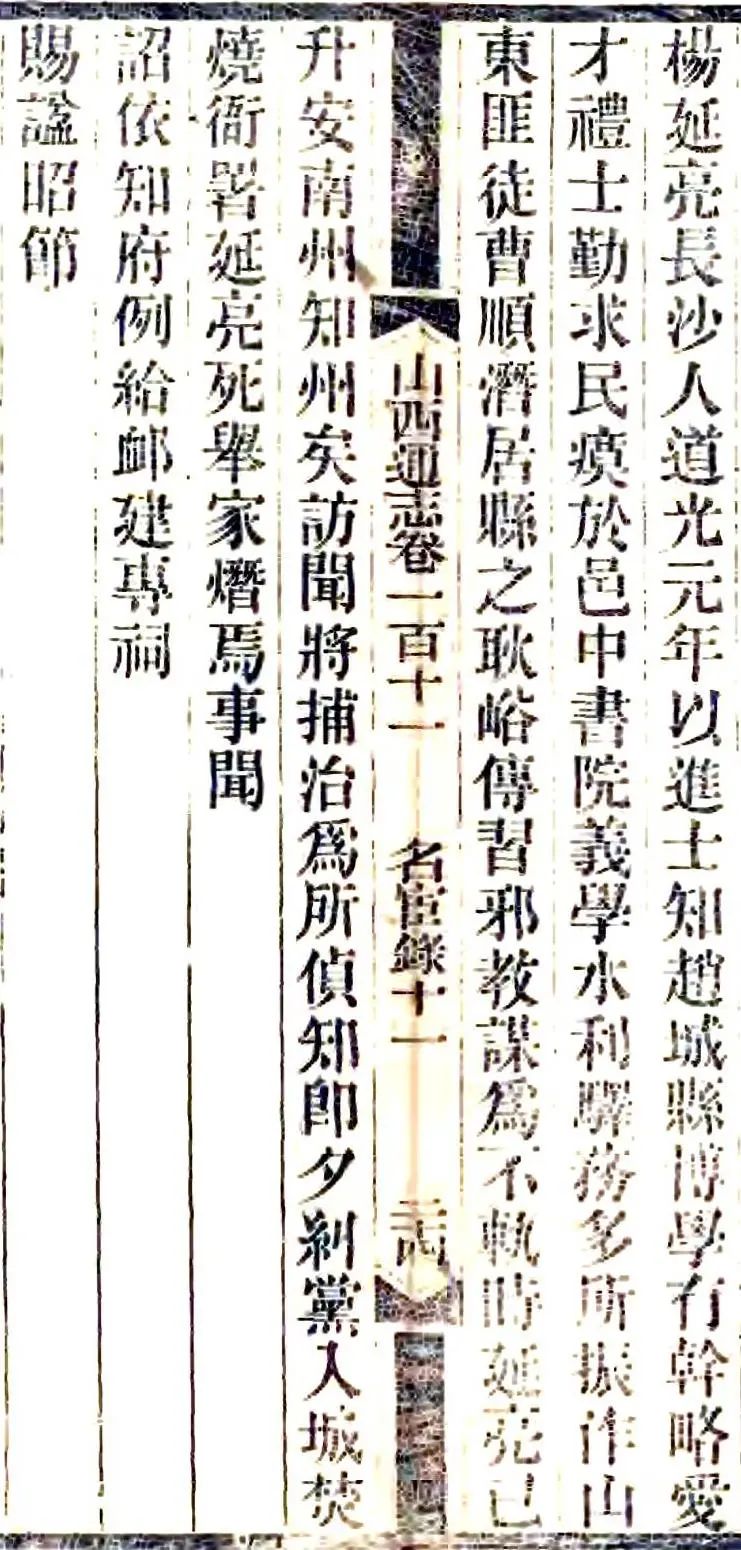 楊延亮長沙人道光元年以進士知趙城縣博學有幹略愛
才禮士勤求民瘼於邑中書院義學水利驛務多所振作山
東匪徒曹順潛居縣之耿峪傳習邪教謀爲不軌時延亮已
山西通志卷一百十一 名宦錄十一
升安南州知州矣訪聞將捕治爲所偵知卽夕糾黨入城焚
燒衙署延亮死舉家燔焉事聞
詔依知府例給卹建專祠
賜諡昭節